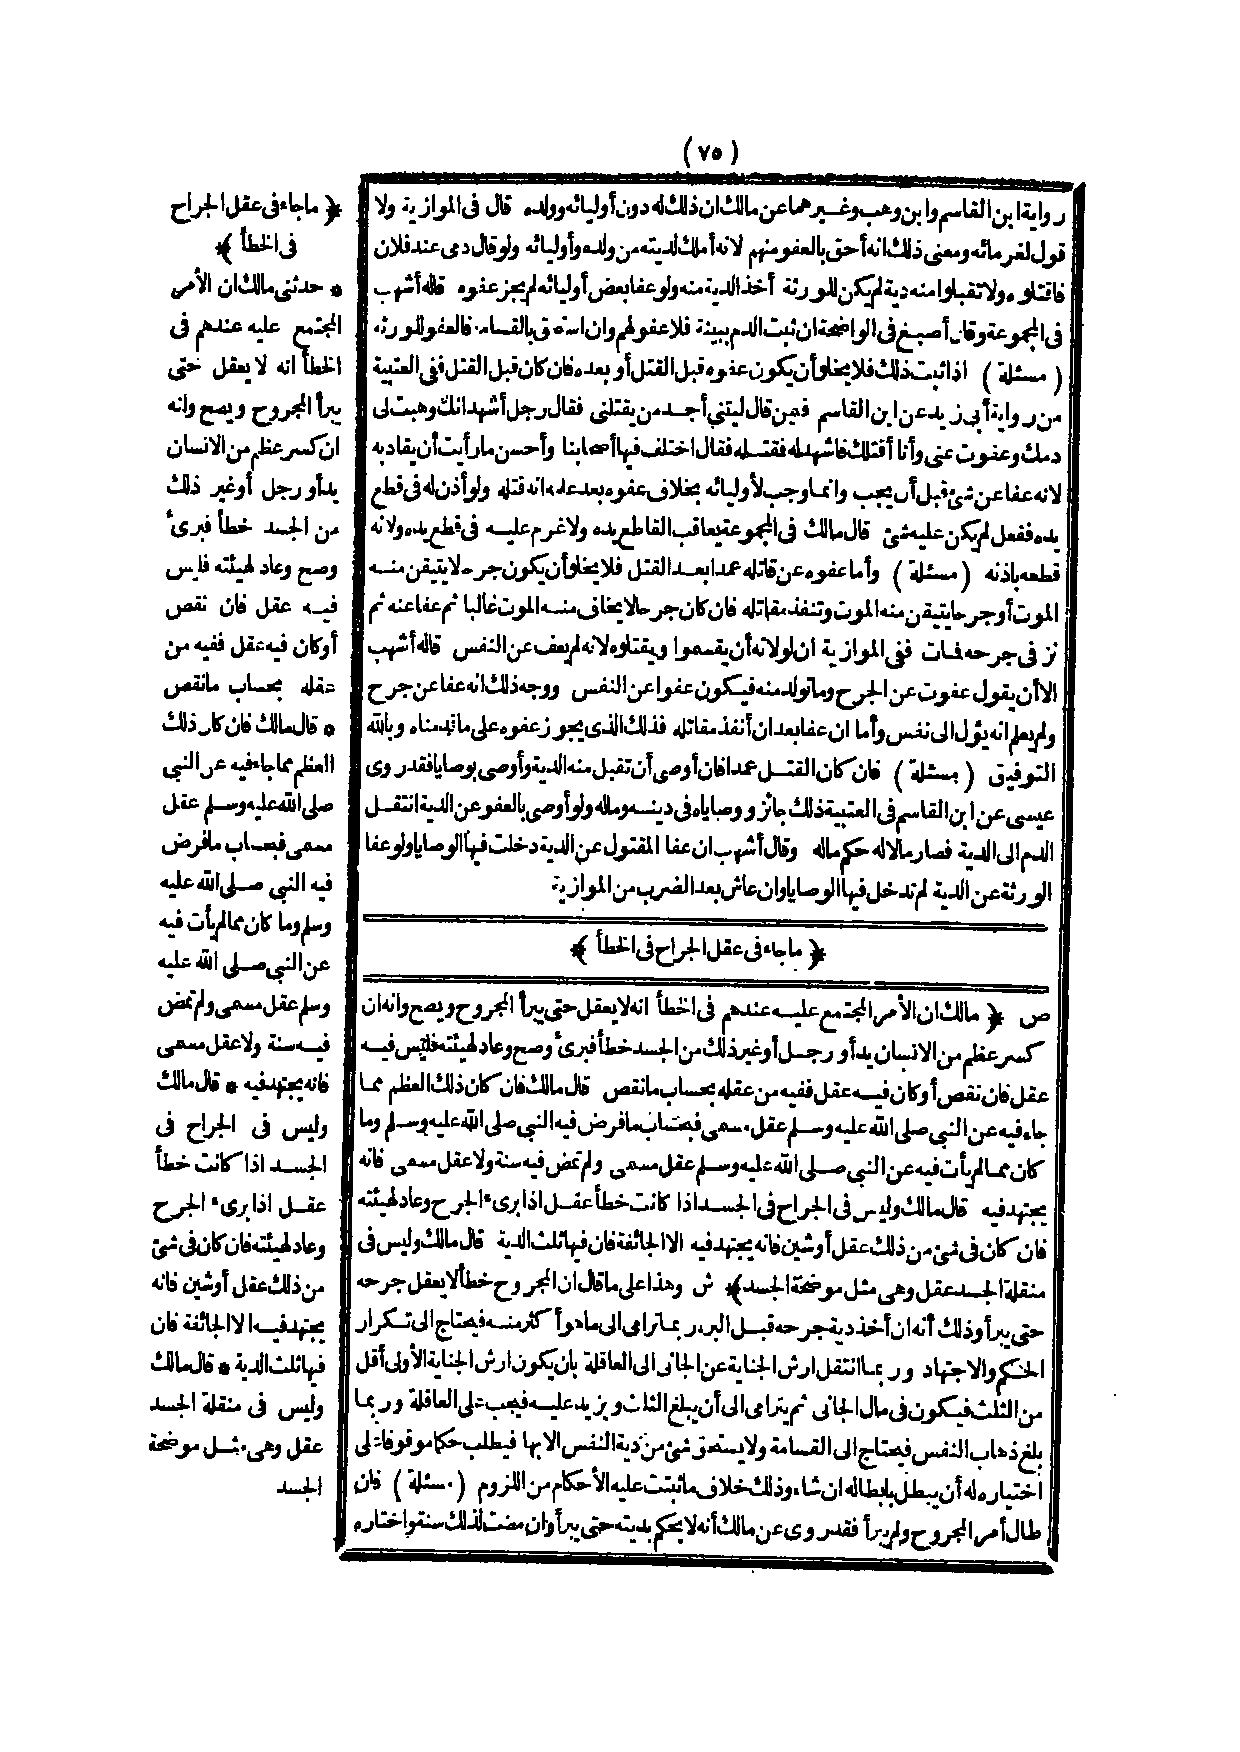 (٧٥)
رواية ابن القاسم وابن وهب وغيرهما عن مالك ان ذلك له دون أوليائه وولده قال فى الموازية ولا
قول لغرمائه ومعنى ذلك انه أحق بالعفو منهم لانه أملك لديته من ولده وأوليائه ولو قال دمى عند فلان
فاقتلوه ولا تقبلوا منه دية لم يكن للورثة أخذ الدية منه ولو عفا بعض أوليائه لم يجز عفوه قاله أشهب
فى المجموعة وقال أصبغ فى الواضحة ان ثبت الدم ببينة فلا عفو لهم وان استحق بالقسامة فالعفو للورثة
(مسئلة) اذا ثبت ذلك فلا يخلو أن يكون عفوه قبل القتل أو بعده فان كان قبل القتل ففى العتبية
من رواية أبى زيد عن ابن القاسم فمن قال ليتنى أجد من يقتلنى فقال رجل أشهد انك وهبت لى
دمك وعفوت عنى وأنا أقتلك فاشهد له فقتله فقال اختلف فيها أصحابنا وأحسن ما رأيت أن يقاد به
لانه عفا عن شئ قبل أن يجب وانما وجب لأوليائه بخلاف عفوه بعد علمه انه قتله ولو أذن له فى قطع
يده ففعل لم يكن عليه شئ قال مالك فى المجموعة يعاقب القاطع يده ولا غرم عليه فى قطع يده ولانه
قطعه باذنه (مسئلة) وأما عفوه عن قاتله عمدا بعد القتل فلا يخلو أن يكون جرحه لا يتيقن منه
الموت أو جرحا يتيقن منه الموت وتنفذ مقاتله فان كان جرحا لا يخاف منه الموت غالبا ثم عفا عنه ثم
نزى فى جرحه فمات ففى الموازية ان لولاته أن يقسموا ويقتلوه لانه لم يعف عن النفس قاله أشهب
الا أن يقول عفوت عن الجرح وما تولد منه فيكون عفوا عن النفس ووجه ذلك انه عفا عن جرح
ولم يعلم انه يؤل الى نفس وأما ان عفا بعد ان أنفذ مقاتله فذلك الذى يجوز عفوه على ما قدمناه وبالله
التوفيق (مسئلة) فان كان القتل عمدا فان أوصى أن تقبل منه الدية وأوصى بوصايا فقد روى
عيسى عن ابن القاسم فى العتبية ذلك جائز ووصاياه فى دينه وماله ولو أوصى بالعفو عن الدية انتقل
الدم الى الدية فصار مالا له حكم ماله وقال أشهب ان عفا المقتول عن الدية دخلت فيها الوصايا ولو عفا
الورثة عن الدية لم تدخل فيها الوصايا وان عاش بعد الضرب من الموازية
﴿ ماجاء فى عقل الجراح فى الخطأ ﴾
ص ﴿ مالك ان الأمر المجتمع عليه عندهم فى الخطأ انه لا يعقل حتى يبرأ المجروح ويصح وانه ان
كسر عظم من الانسان يد أو رجل أو غير ذلك من الجسد خطأ فبرئ وصح وعاد لهيئته فليس فيه
عقل فان نقص أو كان فيه عقل ففيه من عقله بحساب ما نقص قال مالك فان كان ذلك العظم مما
جاء فيه عن النبى صلى الله عليه وسلم عقل مسمى فبحساب ما فرض فيه النبى صلى الله عليه وسلم وما
كان مما لم يأت فيه عن النبى صلى الله عليه وسلم عقل مسمى ولم تمض فيه سنة ولا عقل مسمى فانه
يجتهد فيه قال مالك وليس فى الجراح فى الجسد اذا كانت خطأ عقل اذا برئ الجرح وعاد لهيئته
فان كان فى شئ من ذلك عقل أو شين فانه يجتهد فيه الا الجائفة فان فيها ثلث الدية قال مالك وليس فى
منقلة الجسد عقل وهى مثل موضحة الجسد ﴾ ش وهذا على ما قال ان المجروح خطأ لا يعقل جرحه
حتى يبرأ وذلك أنه ان أخذ دية جرحه قبل البرء ربما ترامى الى ما هو أكثر منه فيحتاج الى تكرار
الحكم والاجتهاد وربما انتقل ارش الجناية عن الجانى الى العاقلة بان يكون ارش الجناية الأولى أقل
من الثلث فيكون فى مال الجانى ثم يترامى الى أن يبلغ الثلث ويزيد عليه فيجب على العاقلة وربما
بلغ ذهاب النفس فيحتاج الى القسامة ولا يستحق شئ من دية النفس الا بها فيطلب حكما موقوفا على
اختياره له أن يبطل بابطاله ان شاء وذلك خلاف ما ثبتت عليه الأحكام من اللزوم (مسئلة) فان
طال أمر المجروح ولم يبرأ فقد روى عن مالك أنه لا يحكم بديته حتى يبرأ وان مضت لذلك سنة واختاره
﴿ ماجاء فى عقل الجراح
فى الخطأ ﴾
* حدثنى مالك ان الأمر
المجتمع عليه عندهم فى
الخطأ انه لا يعقل حتى
يبرأ المجروح ويصح وانه
ان كسر عظم من الانسان
يد أو رجل أو غير ذلك
من الجسد خطأ فبرئ
وصح وعاد لهيئته فليس
فيه عقل فان نقص
أو كان فيه عقل ففيه من
عقله بحساب ما نقص
* قال مالك فان كان ذلك
العظم مما جاء فيه عن النبى
صلى الله عليه وسلم عقل
مسمى فبحساب ما فرض
فيه النبى صلى الله عليه
وسلم وما كان مما لم يأت فيه
عن النبى صلى الله عليه
وسلم عقل مسمى ولم تمض
فيه سنة ولا عقل مسمى
فانه يجتهد فيه * قال مالك
وليس فى الجراح فى
الجسد اذا كانت خطأ
عقل اذا برئ الجرح
وعاد لهيئته فان كان فى شئ
من ذلك عقل أو شين فانه
يجتهد فيه الا الجائفة فان
فيها ثلث الدية * قال مالك
وليس فى منقلة الجسد
عقل وهى مثل موضحة
الجسد